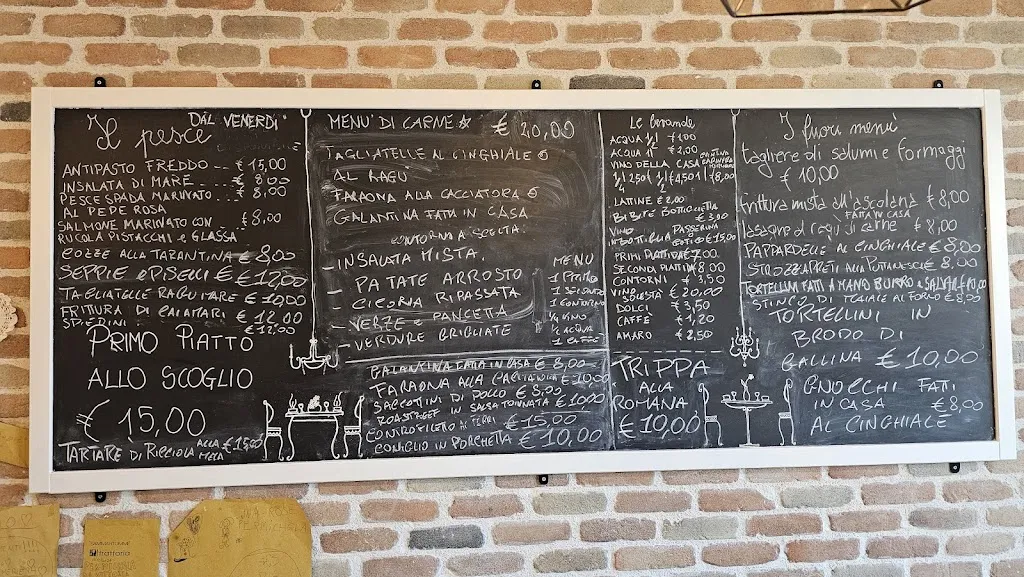 Il pesce
DAL VENERDI'
ANTIPASTO FREDDO -- € 15,00
INSALATA DI MARE -- € 8,00
PESCE SPADA MARINATO € 8,00
AL PEPE ROSA
SALMONE MARINATO CON € 8,00
RUCOLA PISTACCHI E GLASSA
COZZE ALLA TARANTINA € 8,00
SEPPIE E PISELLI € 12,00
TAGLIATELLE RAGU MARE € 10,00
FRITTURA DI CALAMARI € 12,00
SPIEDINI € 12,00
PRIMO PIATTO
ALLO SCOGLIO
€ 15,00
TARTARE DI RICCIOLA ALLA MELA € 15,00
MENU' DI CARNE € 20,00
TAGLIATELLE AL CINGHIALE O
AL RAGU
FARAONA ALLA CACCIATORA O
GALANTINA FATTA IN CASA
CONTORNO A SCELTA
- INSALATA MISTA
- PATATE ARROSTO
- CICORIA RIPASSATA
- VERZE E PANCETTA
- VERDURE GRIGLIATE
MENU
1 PRIMO
1 SECONDO
1 CONTORNO
1/4 VINO
1/2 ACQUA
1 CAFFÈ
GALANTINA FATTA IN CASA € 8,00
FARAONA ALLA CACCIATORA € 10,00
SACCOTTINI DI POLLO € 8,00
ROASTBEEF IN SALSA TONNATA € 10,00
CONTROFILETTO AI FERRI € 15,00
CONIGLIO IN PORCHETTA € 10,00
Le bevande
ACQUA 1/2 € 1,00
ACQUA 1 l € 2,00
VINO DELLA CASA
LATTINE € 2,00
BIBITE BOTTIGLIETTA € 3,00
VINO PASSERINA
IN BOTTIGLIA € 15,00
PRIMI PIATTI € 7,00
SECONDI PIATTI € 8,00
CONTORNI € 3,50
€ 20,50
DOLCI € 3,50
CAFFÈ € 1,20
AMARO € 2,50
TRIPPA
ALLA
ROMANA
€ 10,00
I fuori menu'
tagliere di salumi e formaggi
€ 10,00
frittura mista all'ascolana € 8,00
FATTA IN CASA
lasagne al ragù di carne € 8,00
PAPPARDELLE AL CINGHIALE € 8,00
STROZZAPRETI ALLA PUTTANESCA € 8,00
TORTELLINI FATTI A MANO BURRO E SALVIA € 10,00
STINCO DI MAIALE AL FORNO € 8,00
TORTELLINI IN
BRODO DI
GALLINA € 10,00
GNOCCHI FATTI
IN CASA € 8,00
AL CINGHIALE
trattoria